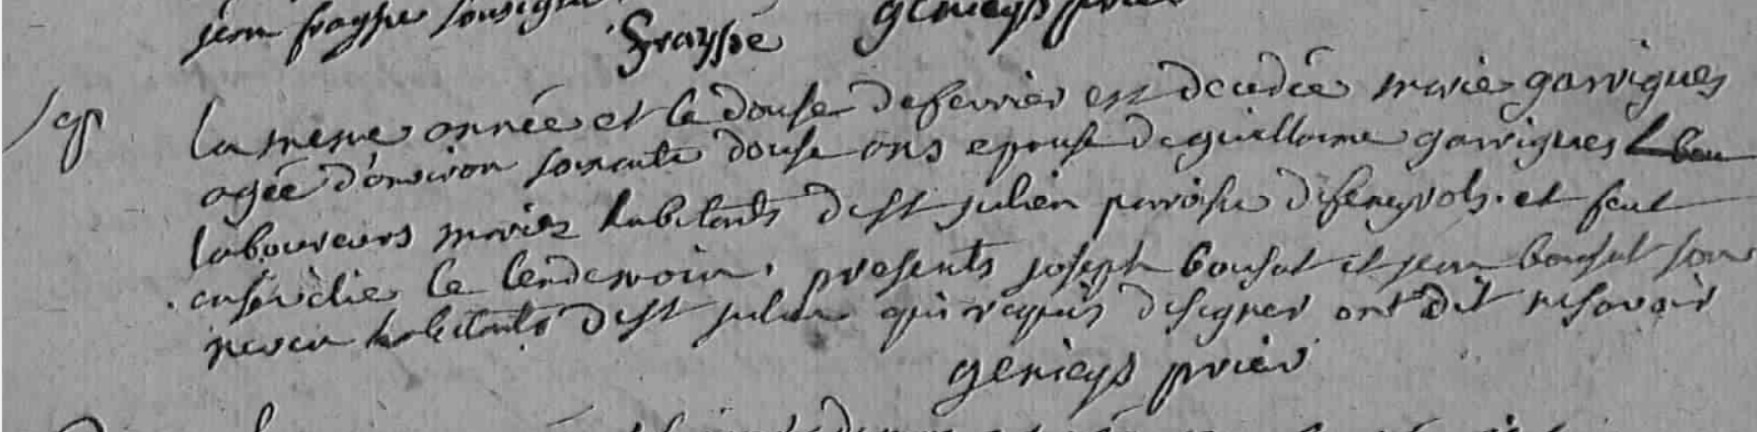 jean fraysse sousigné
fraysse genieys prieur
Sep
la meme année et le douse de fevrier est decedée marie garrigues
agée d'environ soixante douse ans epouse de guillaume garrigues
laboureurs mariés habitants de st julien paroisse de feneyrols. et feut
ensevelie le lendemain. presents joseph bousat et jean bousat son
neveu habitants de st julien qui requis de signer ont dit ne savoir
genieys prieur